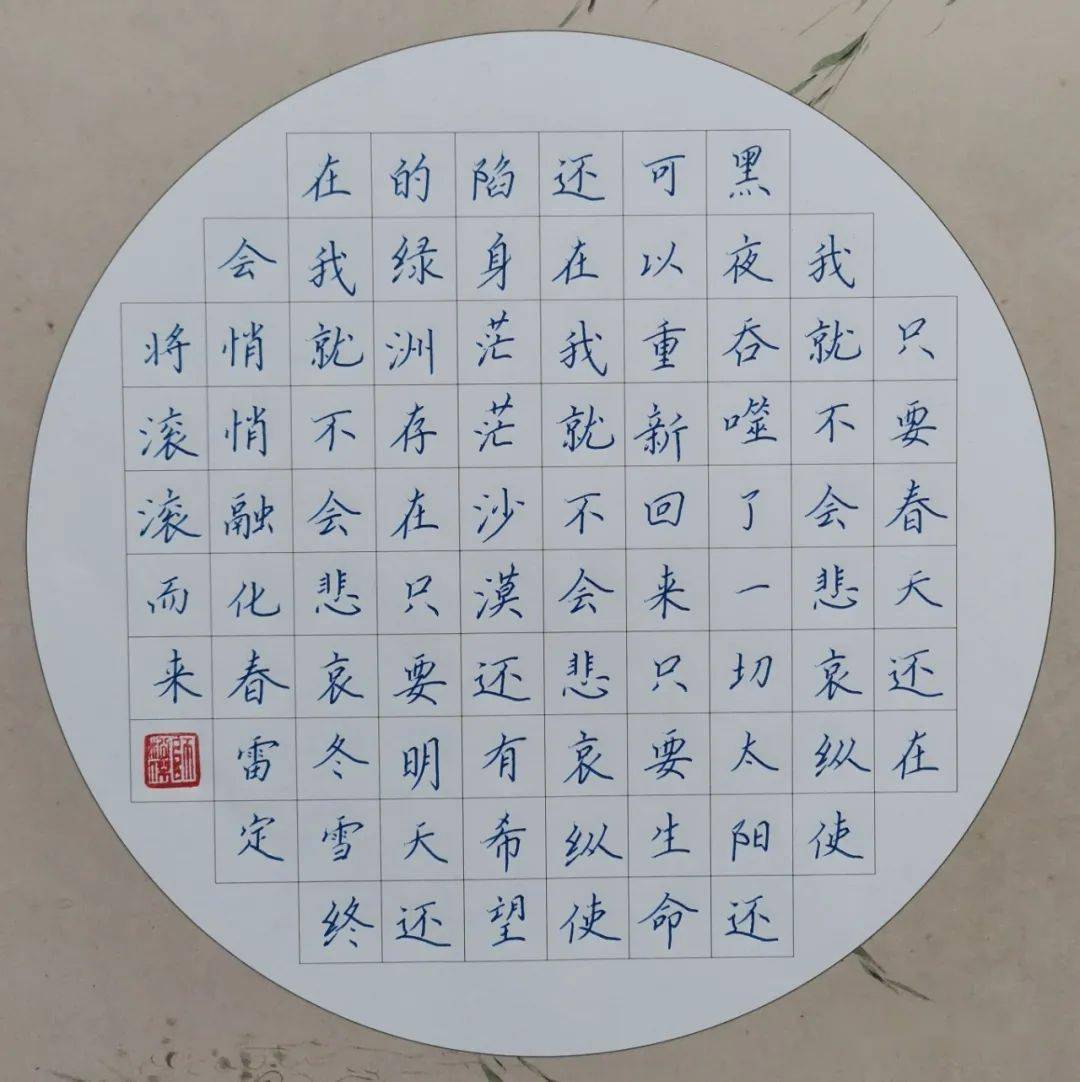 只要春天还在
我就不会悲哀纵使
黑夜吞噬了一切太阳还
可以重新回来只要生命
还在我就不会悲哀纵使
陷身茫茫沙漠还有希望
的绿洲存在只要明天还
在我就不会悲哀冬雪终
会悄悄融化春雷定
将滚滚而来